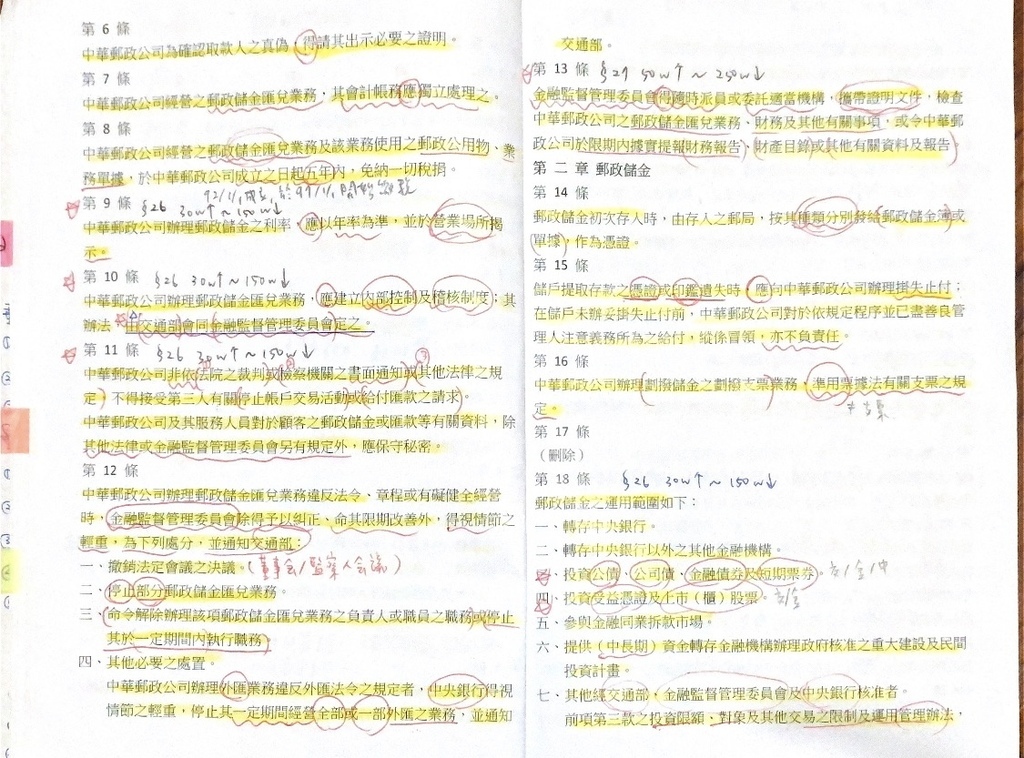 第 6 條
中華郵政公司為確認取款人之真偽，得請其出示必要之證明。
第 7 條
中華郵政公司經營之郵政儲金匯兌業務，其會計帳務應獨立處理之。
第 8 條
中華郵政公司經營之郵政儲金匯兌業務及該業務使用之郵政公用物、業
務單據，於中華郵政公司成立之日起五年內，免納一切稅捐。
92/1/1 成立, 於 97/1/1 開始
第 9 條 §26 30w↑~150w↓
中華郵政公司辦理郵政儲金之利率，應以年率為準，並於營業場所揭
示。
第 10 條 §26 30w↑~150w↓
中華郵政公司辦理郵政儲金匯兌業務，應建立內部控制及稽核制度；其
辦法，由交通部會同金融監督管理委員會定之。
第 11 條 §26 30w↑~150w↓
中華郵政公司非依法院之裁判或檢察機關之書面通知或其他法律之規
定，不得接受第三人有關停止帳戶交易活動或給付匯款之請求。
中華郵政公司及其服務人員對於顧客之郵政儲金或匯款等有關資料，除
其他法律或金融監督管理委員會另有規定外，應保守秘密。
第 12 條
中華郵政公司辦理郵政儲金匯兌業務違反法令、章程或有礙健全經營
時，金融監督管理委員會除得予以糾正、命其限期改善外，得視情節之
輕重，為下列處分，並通知交通部：
一、撤銷法定會議之決議。(董事會/監察人會議)
二、停止部分郵政儲金匯兌業務。
三、命令解除辦理該項郵政儲金匯兌業務之負責人或職員之職務或停止
其於一定期間內執行職務。
四、其他必要之處置。
中華郵政公司辦理外匯業務違反外匯法令之規定者，中央銀行得視
情節之輕重，停止其一定期間經營全部或一部外匯之業務，並通知
交通部。
第 13 條 §27 50w↑~250w↓
金融監督管理委員會得隨時派員或委託適當機構，攜帶證明文件，檢查
中華郵政公司之郵政儲金匯兌業務、財務及其他有關事項，或令中華郵
政公司於限期內據實提報財務報告、財產目錄或其他有關資料及報告。
第 二 章 郵政儲金
第 14 條
郵政儲金初次存入時，由存入之郵局，按其種類分別發給郵政儲金簿或
單據，作為憑證。
第 15 條
儲戶提取存款之憑證或印鑑遺失時，應向中華郵政公司辦理掛失止付；
在儲戶未辦妥掛失止付前，中華郵政公司對於依規定程序並已盡善良管
理人注意義務所為之給付，縱係冒領，亦不負責任。
第 16 條
中華郵政公司辦理劃撥儲金之劃撥支票業務，準用票據法有關支票之規
定。
第 17 條
（刪除）
第 18 條 §26 30w↑~150w↓
郵政儲金之運用範圍如下：
一、轉存中央銀行。
二、轉存中央銀行以外之其他金融機構。
三、投資公債、公司債、金融債券及短期票券。交/金/中
四、投資受益憑證及上市（櫃）股票。交/金
五、參與金融同業拆款市場。
六、提供（中長期）資金轉存金融機構辦理政府核准之重大建設及民間
投資計畫。
七、其他經交通部、金融監督管理委員會及中央銀行核准者。
前項第三款之投資限額、對象及其他交易之限制及運用管理辦法，